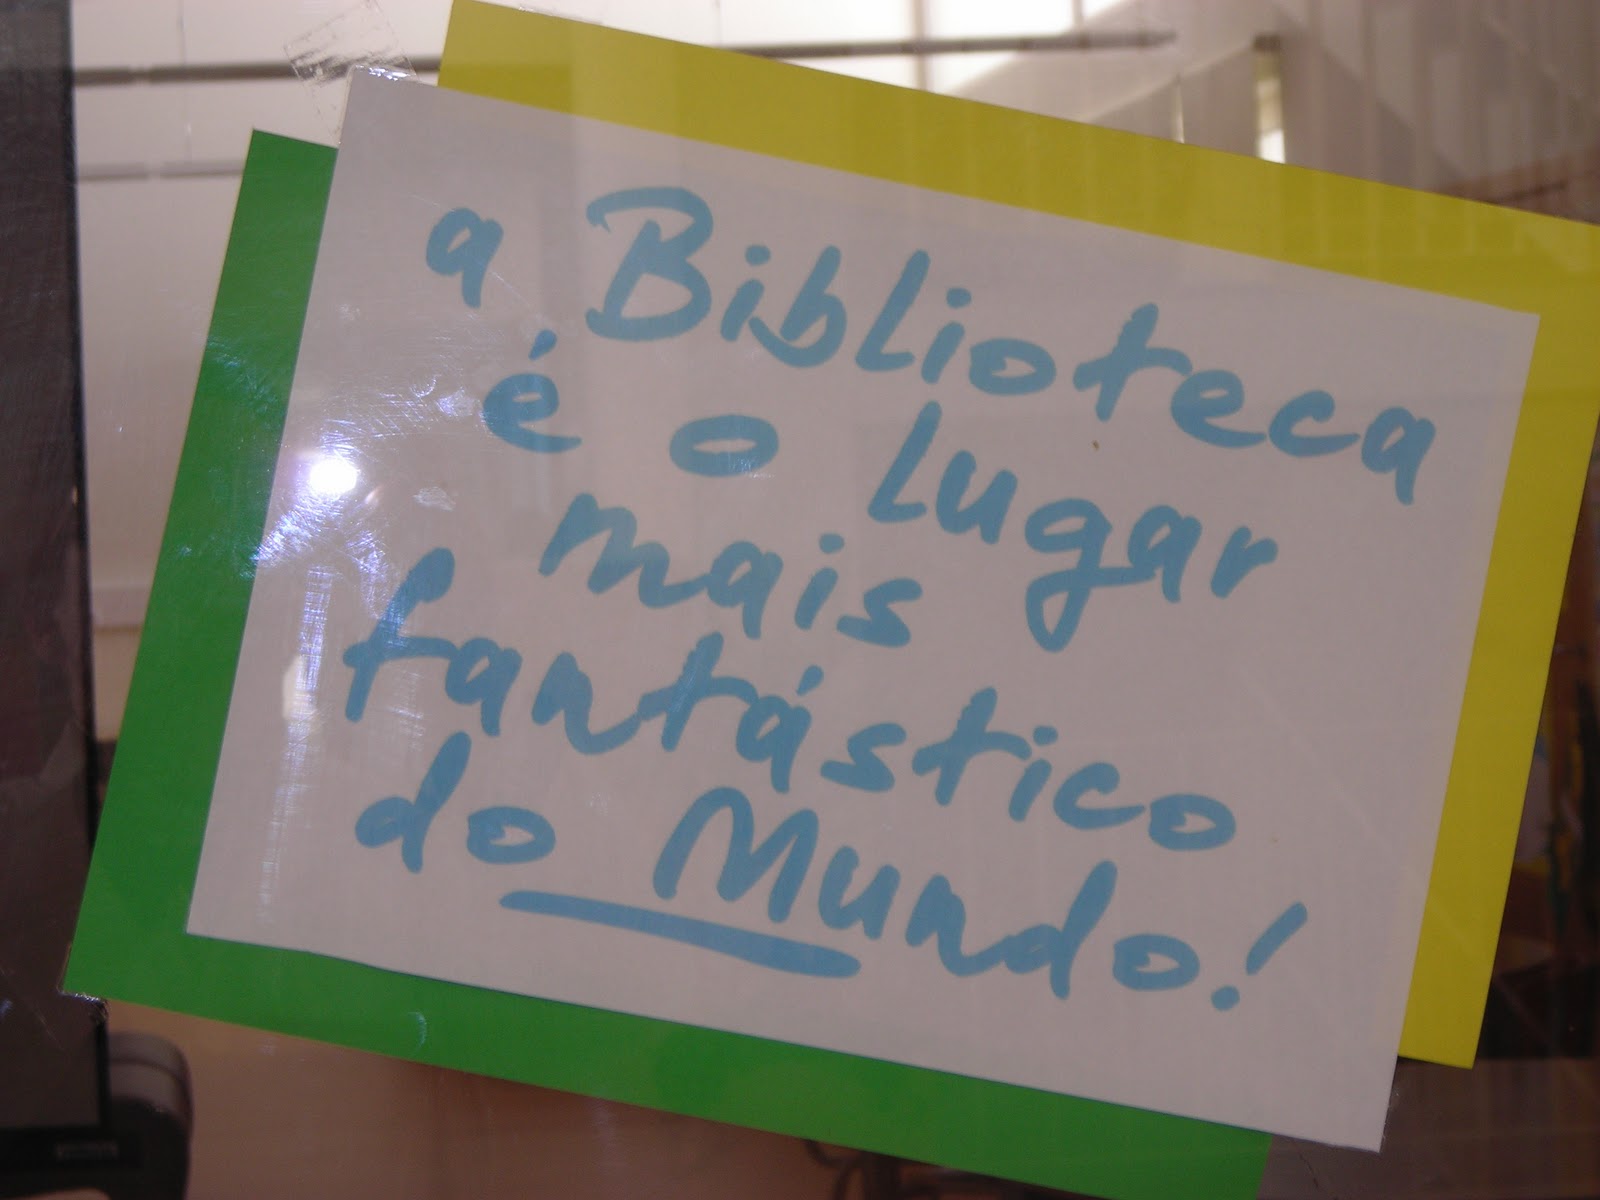 a Biblioteca
é o lugar
mais
fantástico
do Mundo!